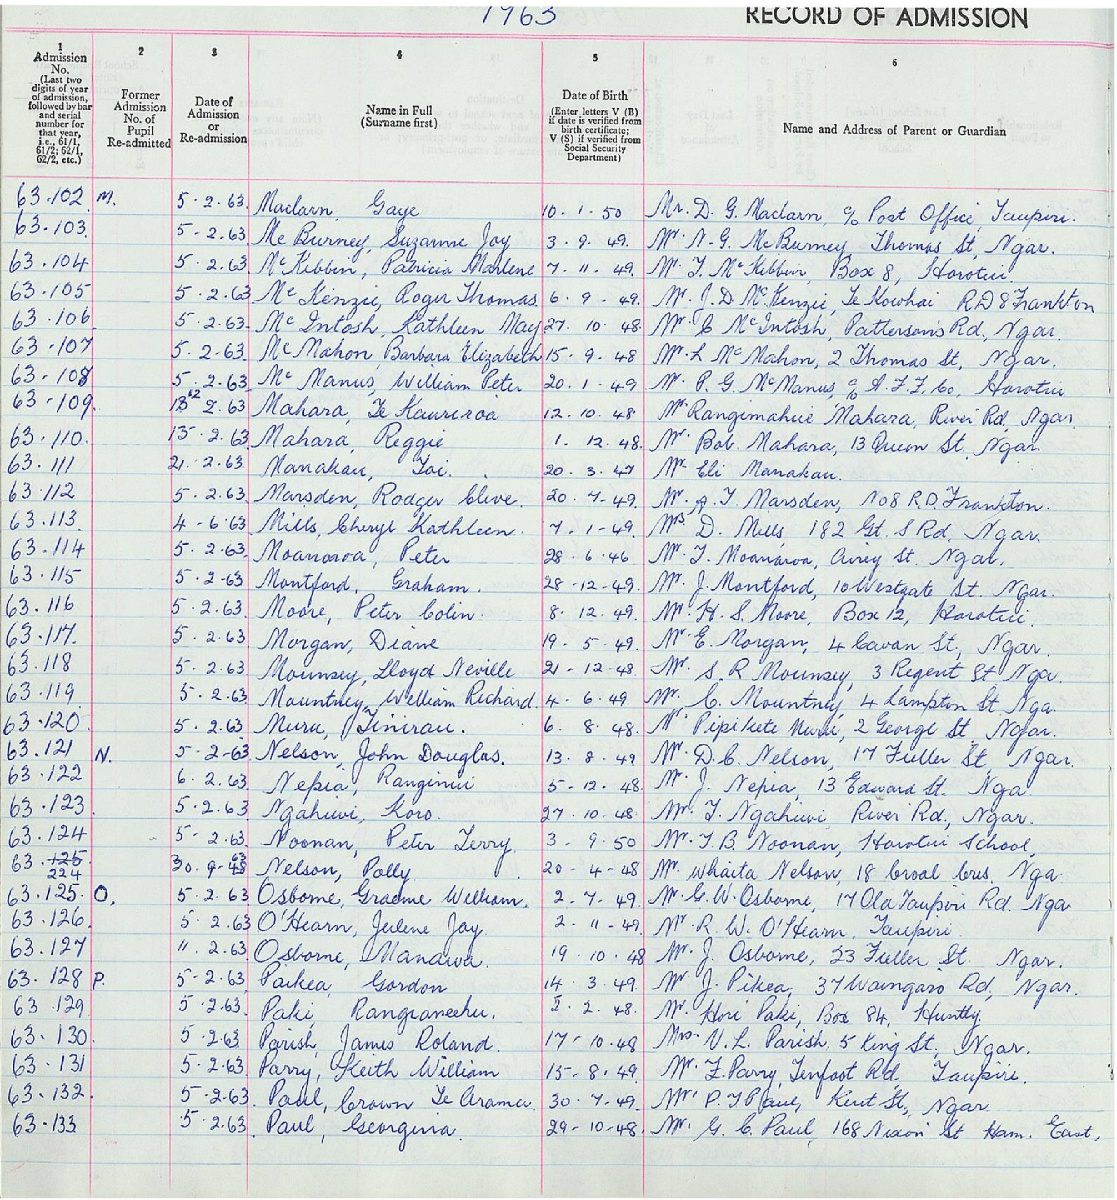 1963 RECORD OF ADMISSION
1 2 3 4 5 6
Admission No. (Last two digits of year of admission, followed by bar and serial number for that year, i.e., 61/1, 61/2; 62/1, 62/2, etc.)
Former Admission No. of Pupil Re-admitted
Date of Admission or Re-admission
Name in Full (Surname first)
Date of Birth (Enter letters V (B) if date is verified from birth certificate; V (S) if verified from Social Security Department)
Name and Address of Parent or Guardian
63.102 M. 5.2.63. Maclarn, Gaye 10.1.50 Mr. D. G. Maclarn, c/o Post Office, Taupiri.
63.103. 5-2.63 McBurney, Suzanne Joy 3.9.49. Mr. A. G. McBurney Thomas St, Ngar.
63.104 5.2.63 McKibbin, Patricia Marlene 7.11.49. Mr. T. McKibbin, Box 8, Horotiu
63.105 5.2.63 McKenzie, Roger Thomas 6.9.49. Mr. J. D McKenzie, Te Kowhai RD 8 Frankton
63.106 5.2.63. McIntosh, Kathleen May 27.10.48 Mr. C McIntosh, Pattersons Rd, Ngar.
63.107 5.2.63 McMahon Barbara Elizabeth 15.9.48 Mr. L McMahon, 2 Thomas St, Ngar.
63.108 5.2.63 McManus, William Peter 20.1.49 Mr. P. G McManus, c/o A.F.F.Co, Horotiu
63.109. 2.63 Mahara, Te 12.10.48 Mr Rangimahue Mahara, River Rd, Ngar.
63.110. 15.2.63 Mahara, Reggie 1.12.48. Mr. Bob Mahara, 13 Queen St, Ngar.
63.111 21.2.63 Manakau, Toi. 20.3.47 Mr Eli Manakau.
63.112 5.2.63 Marsden, Rodger Clive. 20.7.49. Mr. A. T Marsden, No 8 R.D. Frankton.
63.113. 4-6.63 Mills, Cheryl Kathleen. 7.1-49. Mrs D. Mills, 182 Gt. S Rd, Ngar.
63.114 5.2.63. Moanaroa, Peter 28.6.46 Mr. T. Moanaroa, St. Ngar.
63.115 5.2-63 Montford, Graham. 28-12-49. Mr. J. Montford, 10 Westgate St. Ngar.
63.116 5.2.63. Moore, Peter Colin. 8.12.49. Mr. H. S. Moore, Box 12, Horotiu.
63.117. 5.2.63 Morgan, Diane 19.5-49. Mr E. Morgan, 4 Cavan St, Ngar.
63.118 5.2.63 Mounsey, Lloyd Neville 21-12-48. Mr. S. R Mounsey, 3 Regent St Nga.
63.119 5-2.63 Mountney, William Richard. 4-6.49 Mr. C. Mountney, 4 Lampton St Nga
63.120. 5.2.63 Muru, Tinirau. 6.8.48. Mr Pipikete Muru, 2 George St Ngar.
63.121 N. 5-2-63 Nelson, John Douglas. 13.8.49 Mr. D. C. Nelson, 17 Fuller St Ngar.
63.122 6.2.63 Nepia, Ranginui 5-12.48. Mr. J. Nepia, 13 Edward St. Nga
63.123 5.2.63 Ngahuwi, Koro. 27.10.48. Mr. T. Ngahuwi River Rd, Ngar.
63.124 5-2.63. Noonan, Peter Terry. 3-9.50 Mr. T. B. Noonan, Horotiu School
63.125 224 30.9-63 Nelson, Polly 20-4-48 Mr. Whaita Nelson, 18 Croal Cres, Nga
63.125. O. 5.2.63 Osborne, Graeme William. 2-7.49. Mr. G. W. Osborne, 17 Old Taupiri Rd. Nga
63.126. 5.2.63 O'Hearn, Jeslene Joy 2-11-49. Mr R. W. O'Hearn. Taupiri.
63.127 11.2.63 Osborne, Manawa. 19.10.48 Mr. J. Osborne, 23 Fuller St. Ngar.
63.128 P. 5-2.63 Paikea, Gordon 14.3.49 Mr J. Pikea, 37 Waingaro Rd, Ngar.
63.129. 5.2.63. Paki 5.2.48. Mr. Hori Paki, Box 84, Huntly.
63.130. 5.2.63 Parish, James Roland. 17-10.48 Mrs. V. L. Parish. 5 King St, Ngar.
63.131 5.2.63. Parry, Keith William 15-8.49 Mr. F. Parry, Tenfoot Rd, Taupiri.
63.132. 5.2.63. Paul, Crown Te Arama. 30.7.49. Mr P. T Paul, Kent St, Ngar.
63.133 5.2.63. Paul, Georgina. 29-10-48. Mr. G. C. Paul, 168 Nixon St Ham. East,